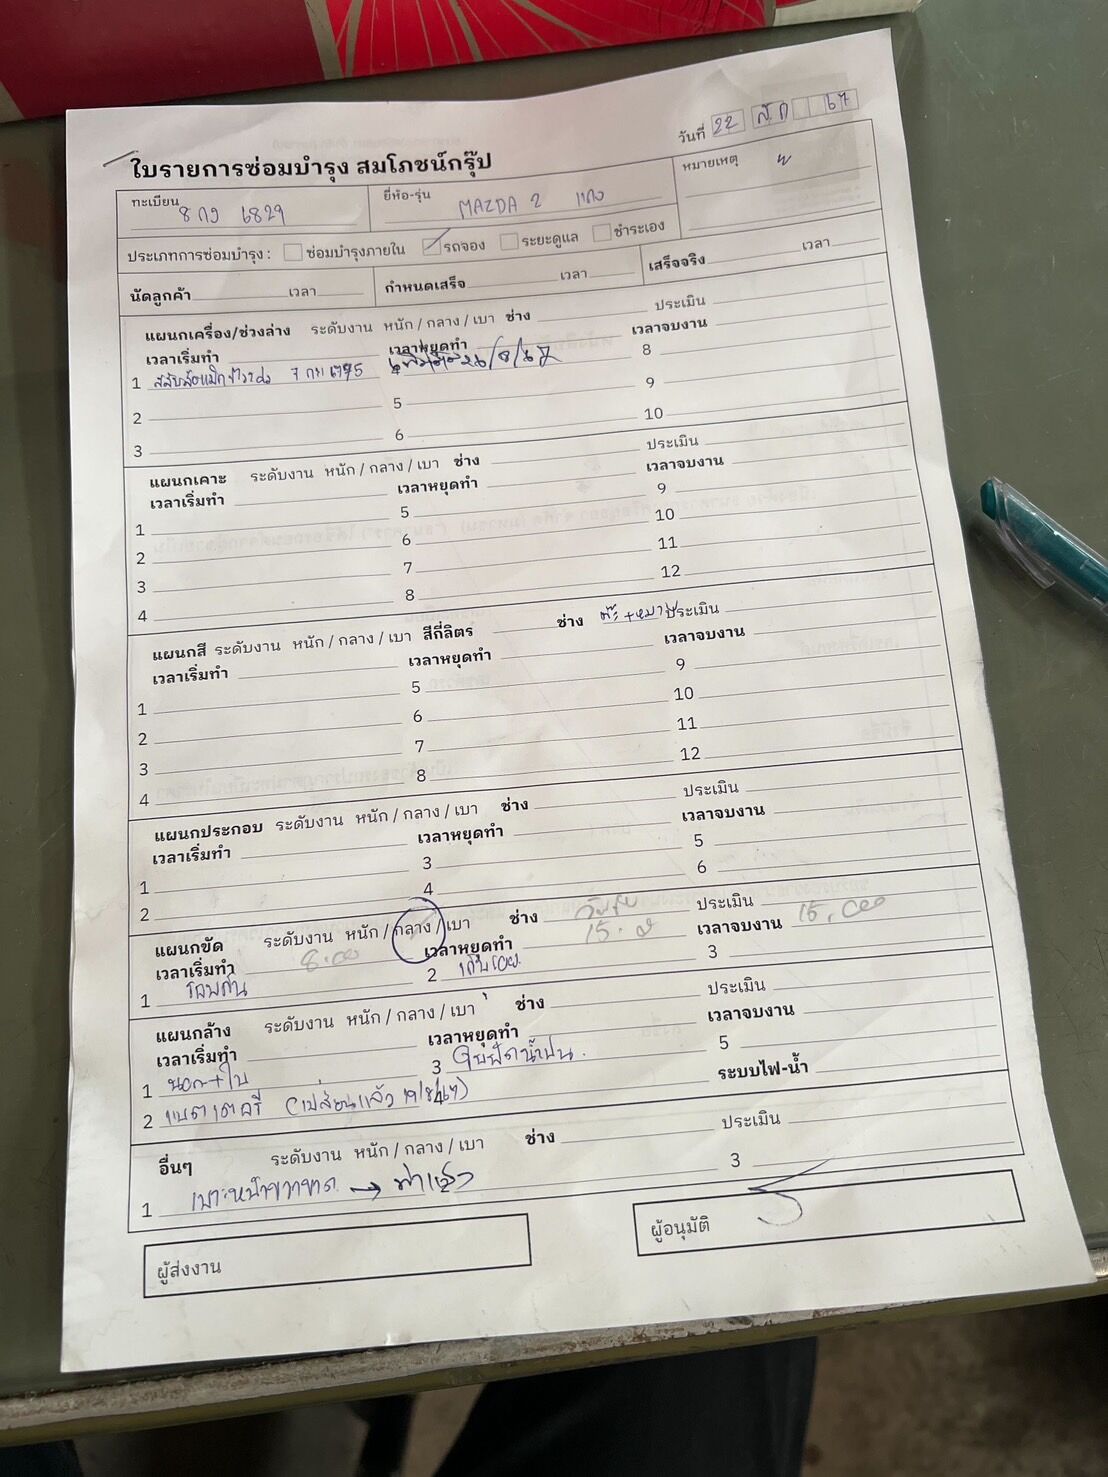 วันที่ 22 ส.ค 67
ใบรายการซ่อมบำรุง สมโภชน์กรุ๊ป
หมายเหตุ
ทะเบียน 8 กง 6829 ยี่ห้อ-รุ่น MAZDA 2 แดง
ประเภทการซ่อมบำรุง : ซ่อมบำรุงภายใน รถจอง ระยะดูแล ชำระเอง
นัดลูกค้า เวลา กำหนดเสร็จ เวลา เสร็จจริง เวลา
แผนกเครื่อง/ช่วงล่าง ระดับงาน หนัก / กลาง / เบา ช่าง ประเมิน
เวลาเริ่มทำ เวลาหยุดทำ เวลาจบงาน
1 สลับล้อแม็ก 4 26/8/67 8
2 5 9
3 6 10
แผนกเคาะ ระดับงาน หนัก / กลาง / เบา ช่าง ประเมิน
เวลาเริ่มทำ เวลาหยุดทำ เวลาจบงาน
1 5 9
2 6 10
3 7 11
4 8 12
แผนกสี ระดับงาน หนัก / กลาง / เบา สีกี่ลิตร ช่าง ประเมิน
เวลาเริ่มทำ เวลาหยุดทำ เวลาจบงาน
1 5 9
2 6 10
3 7 11
4 8 12
แผนกประกอบ ระดับงาน หนัก / กลาง / เบา ช่าง ประเมิน
เวลาเริ่มทำ เวลาหยุดทำ เวลาจบงาน
1 3 5
2 4 6
แผนกขัด ระดับงาน หนัก / กลาง / เบา ช่าง ประเมิน
เวลาเริ่มทำ 8.00 เวลาหยุดทำ เวลาจบงาน 15.00
1 รอบคัน 2 เก็บรอย 3
แผนกล้าง ระดับงาน หนัก / กลาง / เบา ช่าง ประเมิน
เวลาเริ่มทำ เวลาหยุดทำ เวลาจบงาน
1 นอก+ใน 3 ใบปัดน้ำฝน 5
2 แบตเตอรี่ (เปลี่ยนแล้ว 19/8/67) ระบบไฟ-น้ำ
อื่นๆ ระดับงาน หนัก / กลาง / เบา ช่าง ประเมิน
1 เบาะหน้าขวาขาด → 3
ผู้ส่งงาน ผู้อนุมัติ